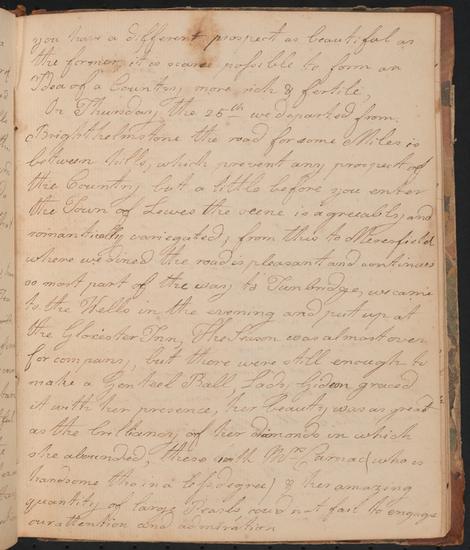 you have a different prospect as beautiful as
the former, it is scarce possible to form an
Idea of a Country more rich & fertile,
On Thursday the 25th we departed from
Brighthelmstone the road for some Miles is
between hills, which prevent any prospect of
the Country but a little before you enter
the Town of Lewes the scene is agreeably and
romantically variegated, from this to Meresfield
where we dined the road is pleasant and continues
so most part of the way to Tunbridge, we came
to the Wells in the evening and put up at
the Glocester Inn, The Season was almost over
for company, but there were still enough to
make a Genteel Ball, Lady Gideon graced
it with her presence, her beauty was as great
as the brilliancy of her diamonds in which
she abounded, these with Mrs Carnac (who is
handsome tho in a less degree) & her amazing
quantity of large Pearls coud not fail to engage
our attention and admiration